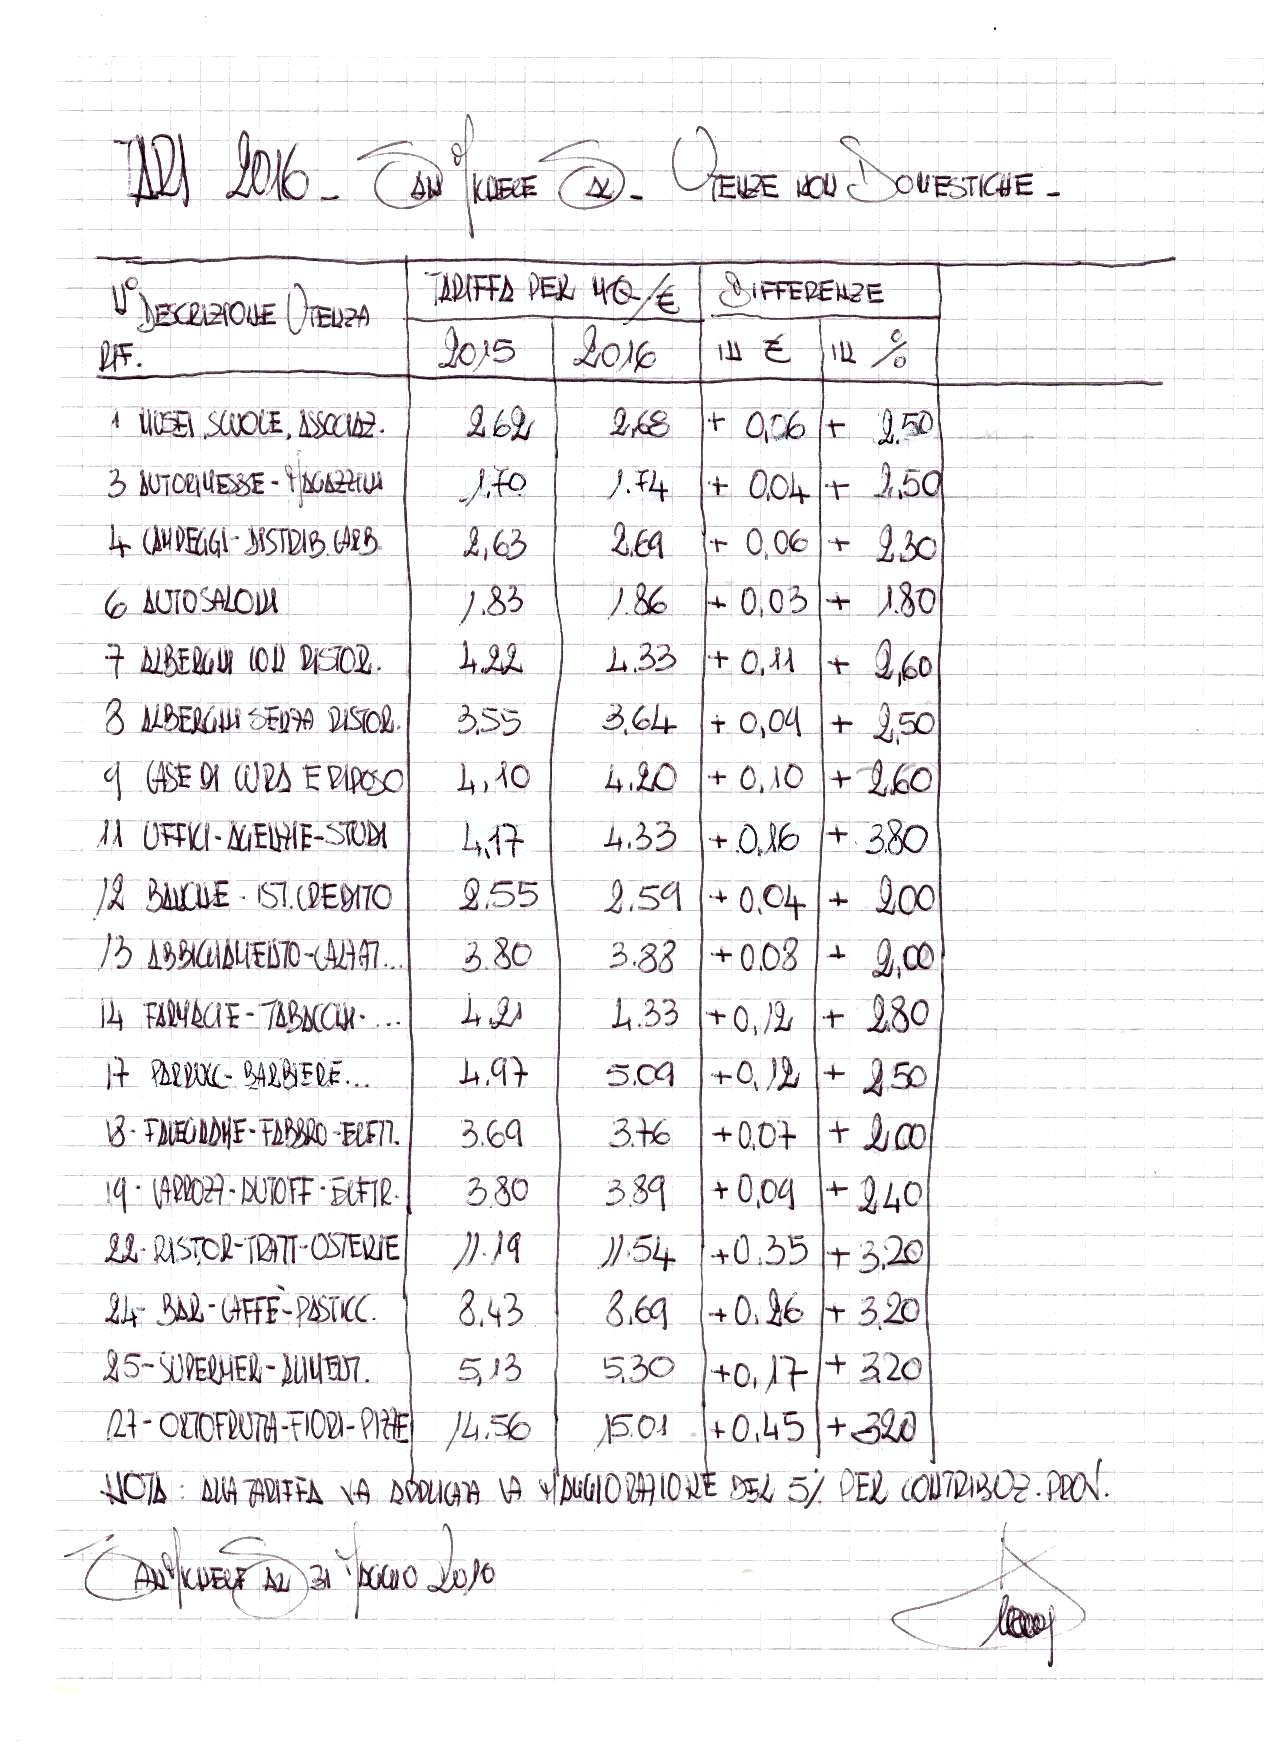 TARI 2016 - SAN MICHELE SAL. - UTENZE NON DOMESTICHE -
N° DESCRIZIONE UTENZA TARIFFA PER MQ/€ DIFFERENZE
RIF. 2015 2016 IN € IN %
1 MUSEI, SCUOLE, ASSOCIAZ. 2,62 2,68 + 0,06 + 2,50
3 AUTORIMESSE - MAGAZZINI 1,70 1.74 + 0,04 + 2,50
4 CAMPEGGI - DISTRIB. CARB. 2,63 2,69 + 0,06 + 2,30
6 AUTOSALONI 1.83 1.86 + 0,03 + 1.80
7 ALBERGHI CON RISTOR. 4,22 4.33 + 0,11 + 2,60
8 ALBERGHI SENZA RISTOR. 3,55 3,64 + 0,09 + 2,50
9 CASE DI CURA E RIPOSO 4,10 4.20 + 0,10 + 2,60
11 UFFICI - AGENZIE - STUDI 4,17 4.33 + 0,16 + 3.80
12 BANCHE - IST. CREDITO 2.55 2.59 + 0,04 + 2,00
13 ABBIGLIAMENTO - CALZAT... 3.80 3.88 + 0,08 + 2,00
14 FARMACIE - TABACCHI - ... 4.21 4.33 + 0,12 + 2,80
17 PARRUCC - BARBIERE... 4.97 5.09 + 0,12 + 2,50
18 - FALEGNAME - FABBRO - ELETT. 3.69 3.76 + 0,07 + 2,00
19 - CARROZZ - AUTOFF - ELETTR. 3.80 3.89 + 0,09 + 2,40
22 - RISTOR - TRATT - OSTERIE 11.19 11.54 + 0.35 + 3,20
24 - BAR - CAFFÈ - PASTICC. 8,43 8,69 + 0,26 + 3,20
25 - SUPERMER - ALIMENT. 5,13 5,30 + 0,17 + 3,20
27 - ORTOFRUTTA - FIORI - PIZZE 14.56 15.01 + 0,45 + 3,20
NOTA: ALLA TARIFFA VA APPLICATA LA MAGGIORAZIONE DEL 5% PER CONTRIBUZ. PROV.
SAN MICHELE SAL 31 MAGGIO 2016